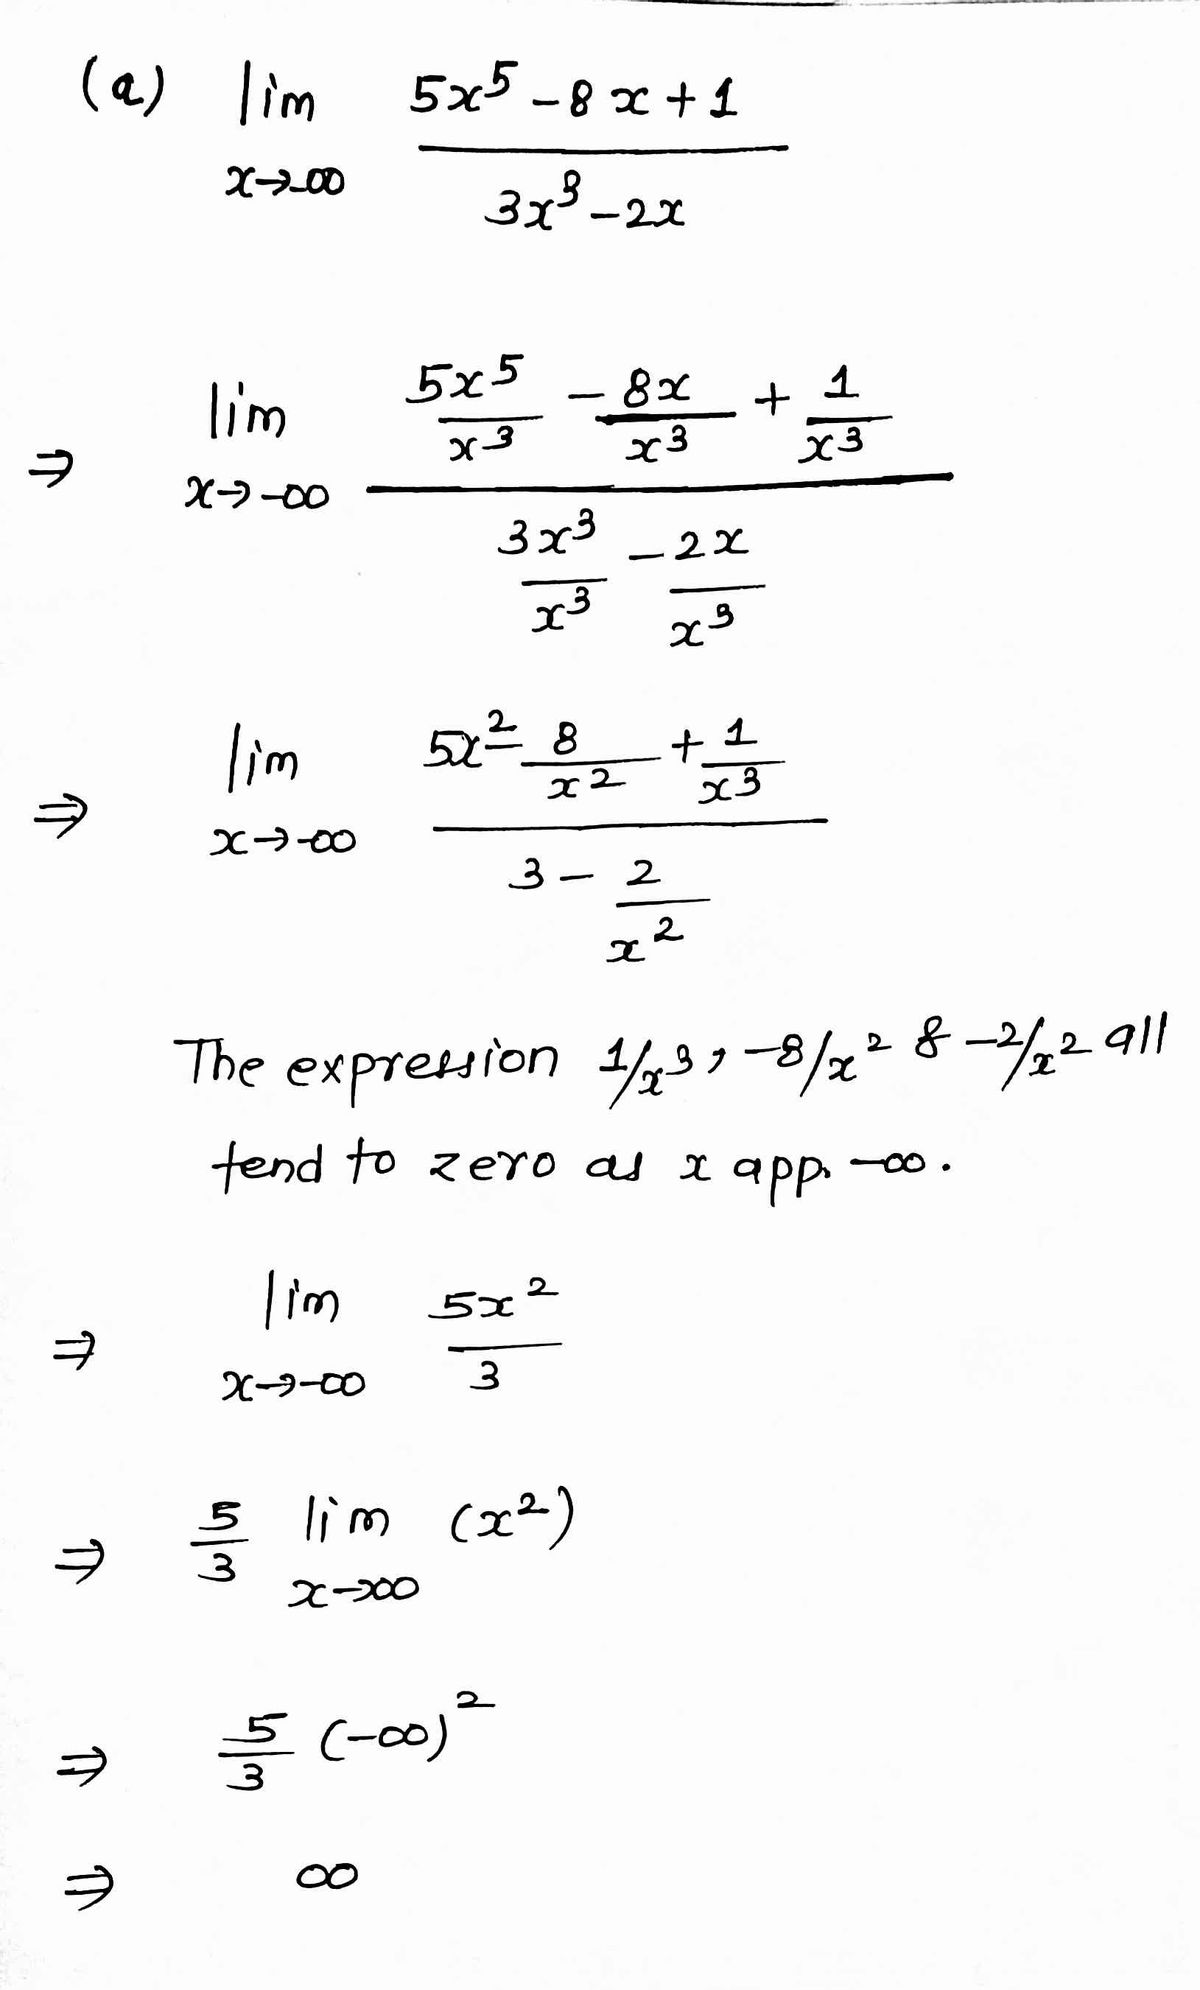 (a) lim 5x⁵ - 8x + 1
x→-∞ 3x³ - 2x
⇒ lim 5x⁵/x³ - 8x/x³ + 1/x³
x→-∞ 3x³/x³ - 2x/x³
⇒ lim 5x² - 8/x² + 1/x³
x→-∞ 3 - 2/x²
The expression 1/x³, -8/x² & -2/x² all
tend to zero as x app. -∞.
⇒ lim 5x²
x→-∞ 3
⇒ 5/3 lim (x²)
x→∞
⇒ 5/3 (-∞)²
⇒ ∞